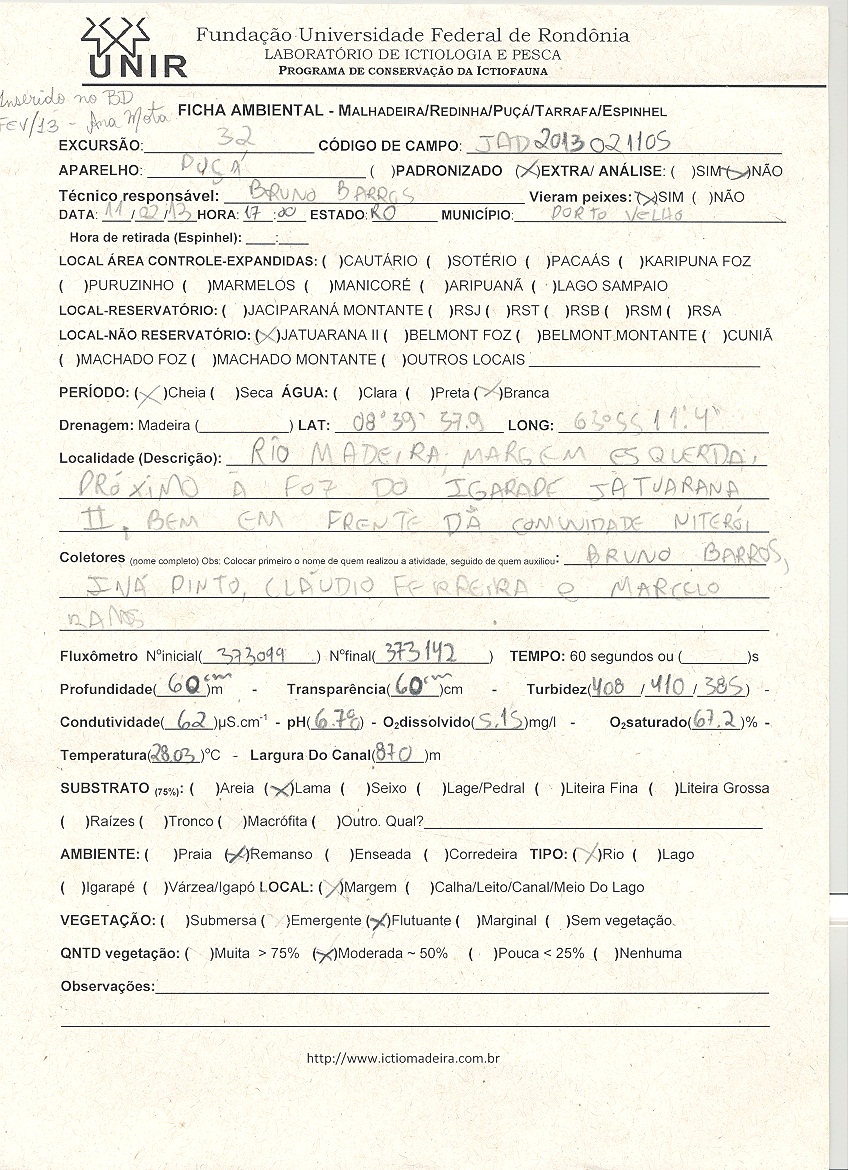 Fundação Universidade Federal de Rondônia
LABORATÓRIO DE ICTIOLOGIA E PESCA
PROGRAMA DE CONSERVAÇÃO DA ICTIOFAUNA
UNIR
Inserido no BD
FEV/13 - Ana Mota
FICHA AMBIENTAL - MALHADEIRA/REDINHA/PUÇÁ/TARRAFA/ESPINHEL
EXCURSÃO: 32 CÓDIGO DE CAMPO: JAD2013021105
APARELHO: PUÇÁ ( )PADRONIZADO (X)EXTRA/ ANÁLISE: ( )SIM (X)NÃO
Técnico responsável: BRUNO BARROS Vieram peixes: (X)SIM ( )NÃO
DATA: 11/02/13 HORA: 17:00 ESTADO: RO MUNICÍPIO: PORTO VELHO
Hora de retirada (Espinhel): ____:____
LOCAL ÁREA CONTROLE-EXPANDIDAS: ( )CAUTÁRIO ( )SOTÉRIO ( )PACAÁS ( )KARIPUNA FOZ
( )PURUZINHO ( )MARMELOS ( )MANICORÉ ( )ARIPUANÃ ( )LAGO SAMPAIO
LOCAL-RESERVATÓRIO: ( )JACIPARANÁ MONTANTE ( )RSJ ( )RST ( )RSB ( )RSM ( )RSA
LOCAL-NÃO RESERVATÓRIO: (X)JATUARANA II ( )BELMONT FOZ ( )BELMONT MONTANTE ( )CUNIÃ
( )MACHADO FOZ ( )MACHADO MONTANTE ( )OUTROS LOCAIS
PERÍODO: (X)Cheia ( )Seca ÁGUA: ( )Clara ( )Preta (X)Branca
Drenagem: Madeira (__________) LAT: 08°39' 37.9 LONG: 63°55 11'.4"
Localidade (Descrição): RIO MADEIRA, MARGEM ESQUERDA,
PRÓXIMO A FOZ DO IGARAPE JATUARANA
II, BEM EM FRENTE DÀ COMUNIDADE NITERÓI
Coletores (nome completo) Obs: Colocar primeiro o nome de quem realizou a atividade, seguido de quem auxiliou: BRUNO BARROS,
INÁ PINTO, CLÁUDIO FERREIRA e MARCELO
RAMOS
Fluxômetro Nºinicial(373099) Nºfinal(373142) TEMPO: 60 segundos ou (________)s
Profundidade(60cm)m - Transparência(60cm)cm - Turbidez(408 / 410 / 385) -
Condutividade(62)µS.cm⁻¹ - pH(6.78) - O₂dissolvido(5.15)mg/l - O₂saturado(67.2)% -
Temperatura(28.03)ºC - Largura Do Canal(870)m
SUBSTRATO (75%): ( )Areia (X)Lama ( )Seixo ( )Lage/Pedral ( )Liteira Fina ( )Liteira Grossa
( )Raízes ( )Tronco ( )Macrófita ( )Outro. Qual?
AMBIENTE: ( )Praia (X)Remanso ( )Enseada ( )Corredeira TIPO: (X)Rio ( )Lago
( )Igarapé ( )Várzea/Igapó LOCAL: (X)Margem ( )Calha/Leito/Canal/Meio Do Lago
VEGETAÇÃO: ( )Submersa ( )Emergente (X)Flutuante ( )Marginal ( )Sem vegetação
QNTD vegetação: ( )Muita > 75% (X)Moderada ~ 50% ( )Pouca < 25% ( )Nenhuma
Observações:
http://www.ictiomadeira.com.br